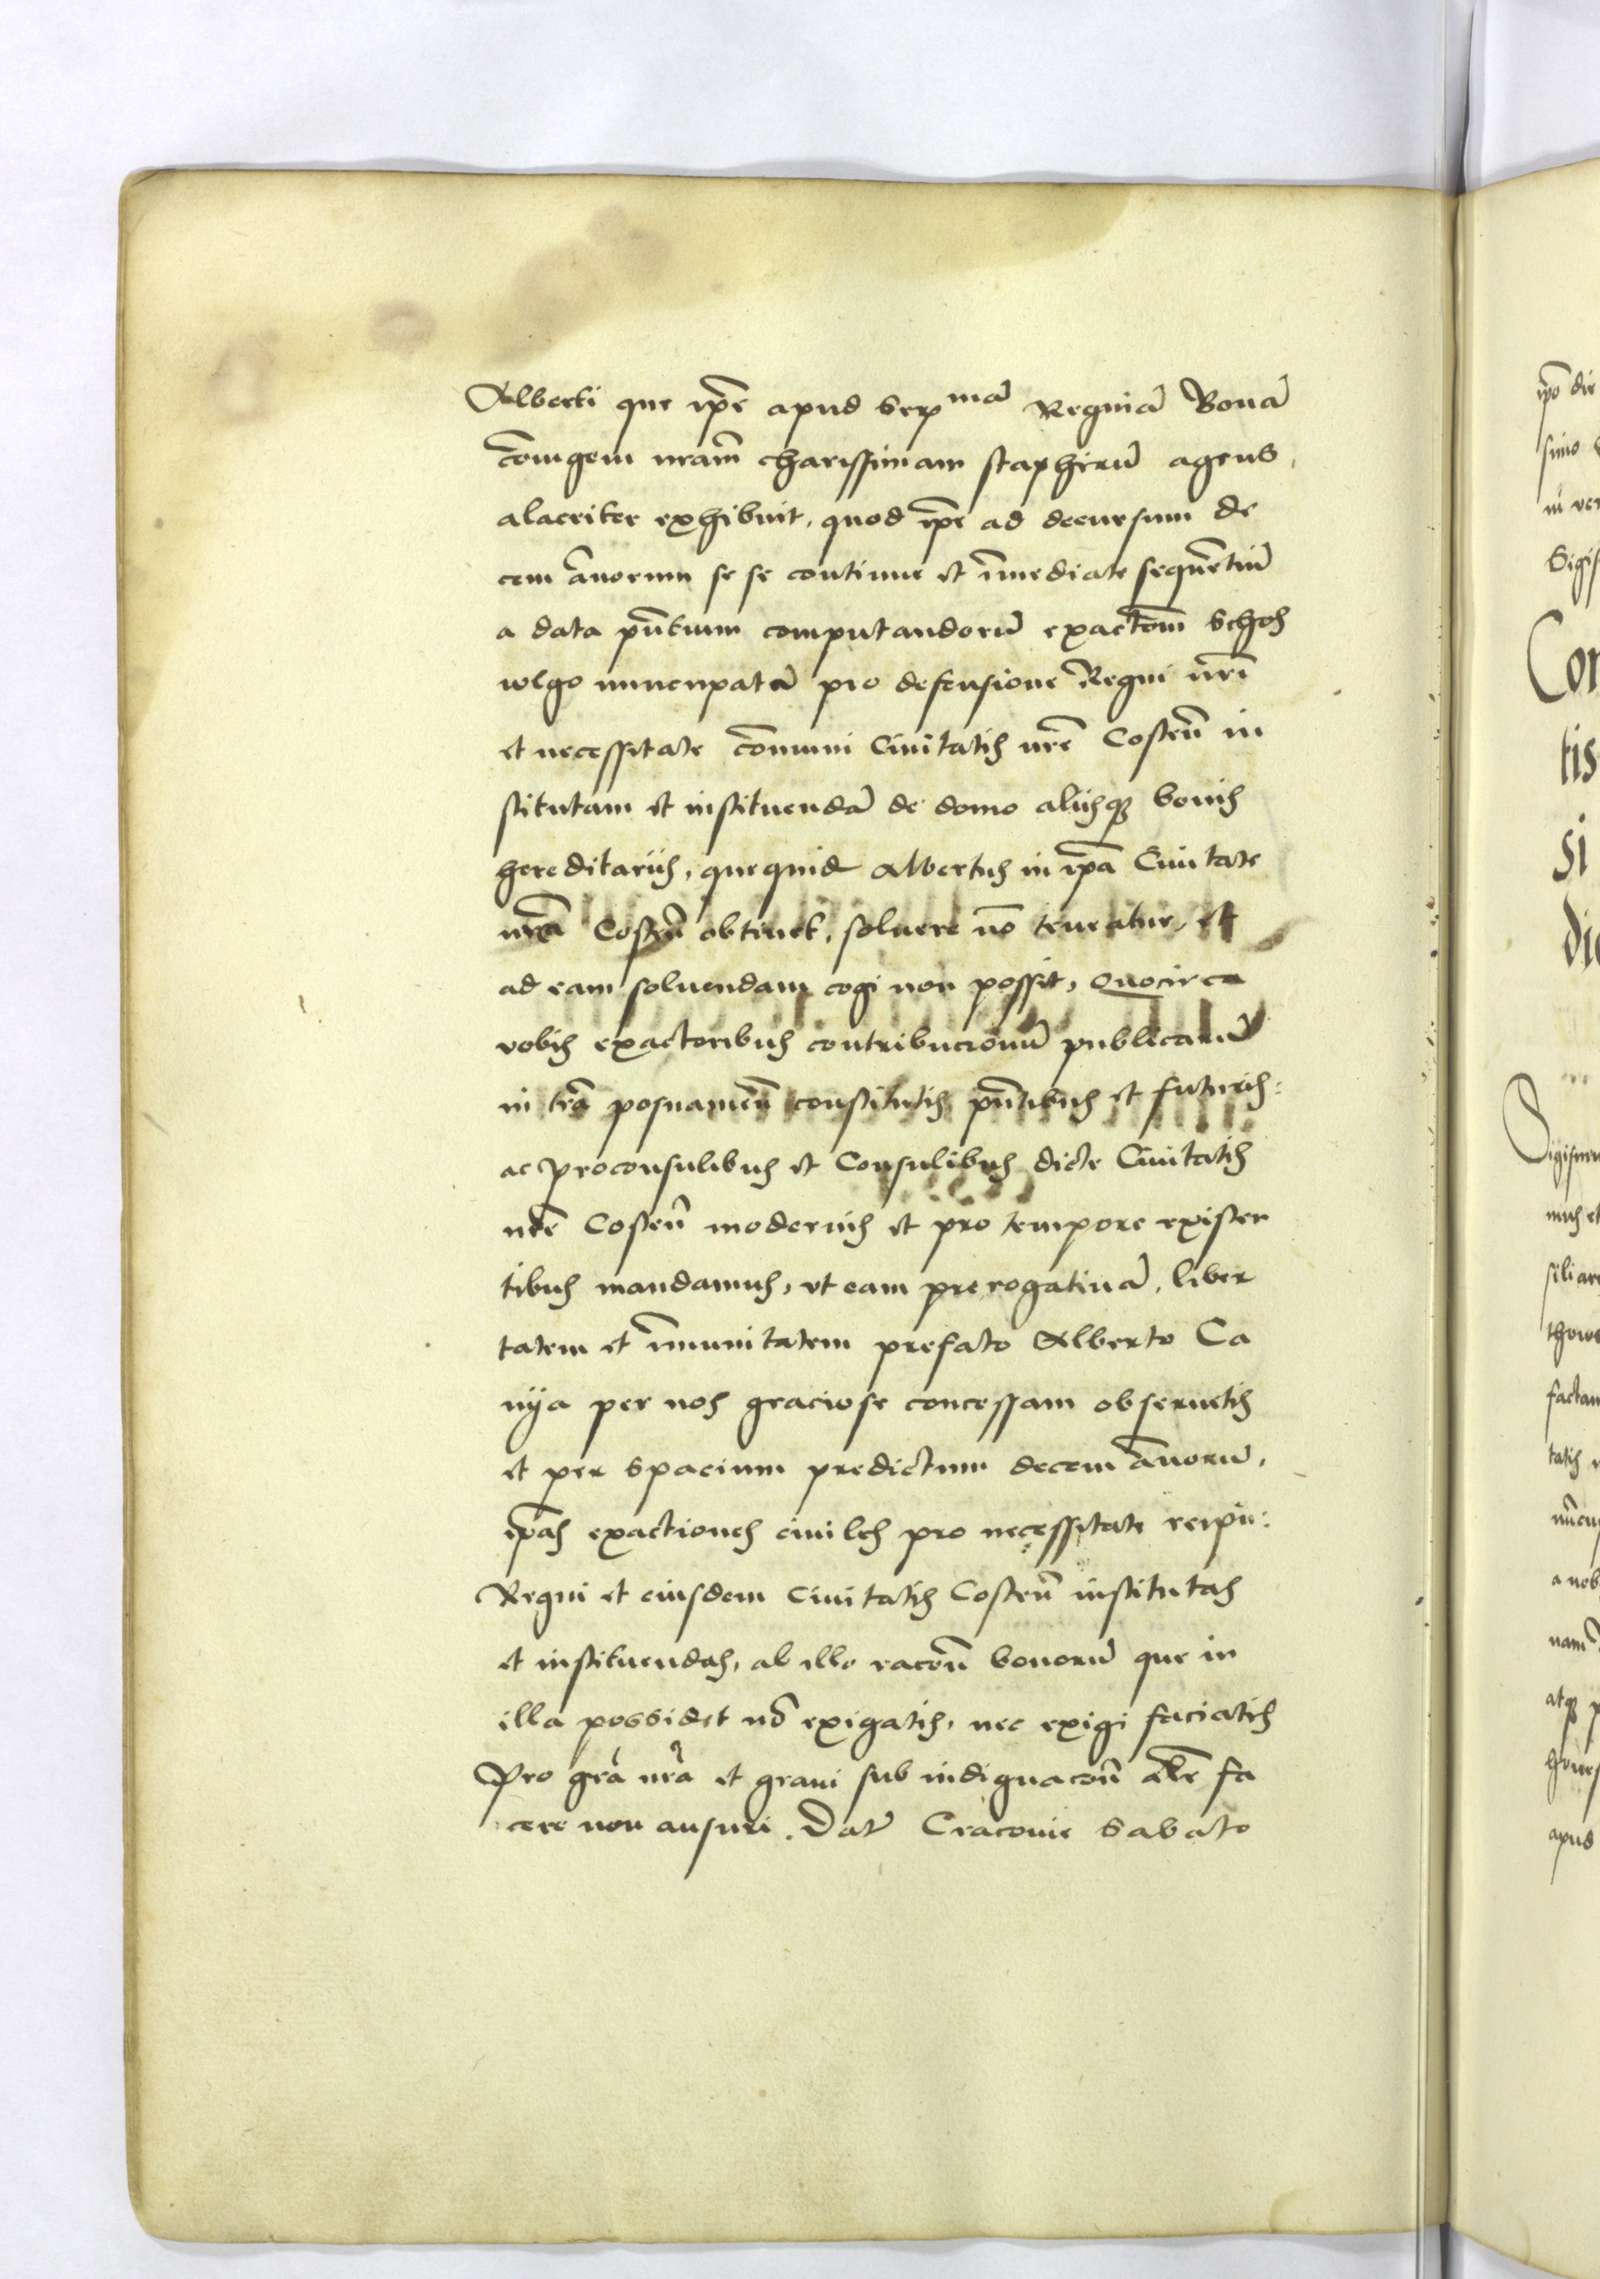 Alberti que ip̄e apud Serᵐᵃ̄ Reginā Bonā
cōiugem nrām charissimam staphirū agens,
alacriter exhibuit, quod ip̄e ad decursum de
cem ānorum se se continue et īmediate sequētiū
a data pn̄tium computandorū exactōm Schos
wlgo nuncupatā pro defensione Regni nrī
et necessitate cōmuni Ciuitatis nrē Costen̄ in
stitutam et instituendā de domo aliisq bonis
hereditariis, que quid Albertus in ip̄a Ciuitate
nrā Costen̄ obtinet, soluere nō teneatur, et
ad eam soluendam cogi non possit, Quocirca
vobis exactoribus contribucionū publicarū
in trā posnanien̄ constitutis pn̄tibus et futuris:
ac proconsulibus et Consulibus dicte Ciuitatis
nrē Costen̄ modernis et pro tempore existen
tibus mandamus, vt eam prerogatiuā, liber
tatem et īmunitatem prefato Alberto Ca
nija per nos graciose concessam obseruetis
et per spacium predictum decem ānorū,
ip̄as exactiones ciuiles pro necessitate reipu:
Regni et eiusdem Ciuitatis Costen̄ institutas
et instituendas, ab illo racōn̄ bonorū que in
illa possidet nō exigatis, nec exigi faciatis
Pro grā nrā et graui sub indignacōn̄ alr̄ fa
cere non ausuri. Dat̄ Cracouie Sabato
ip̄o die
simo
in ver
Sigis
Con
tis
si
dic
Sigismu
mus et
siliar
factam
tatis
nūcu
a nob
nam
atq p
apud